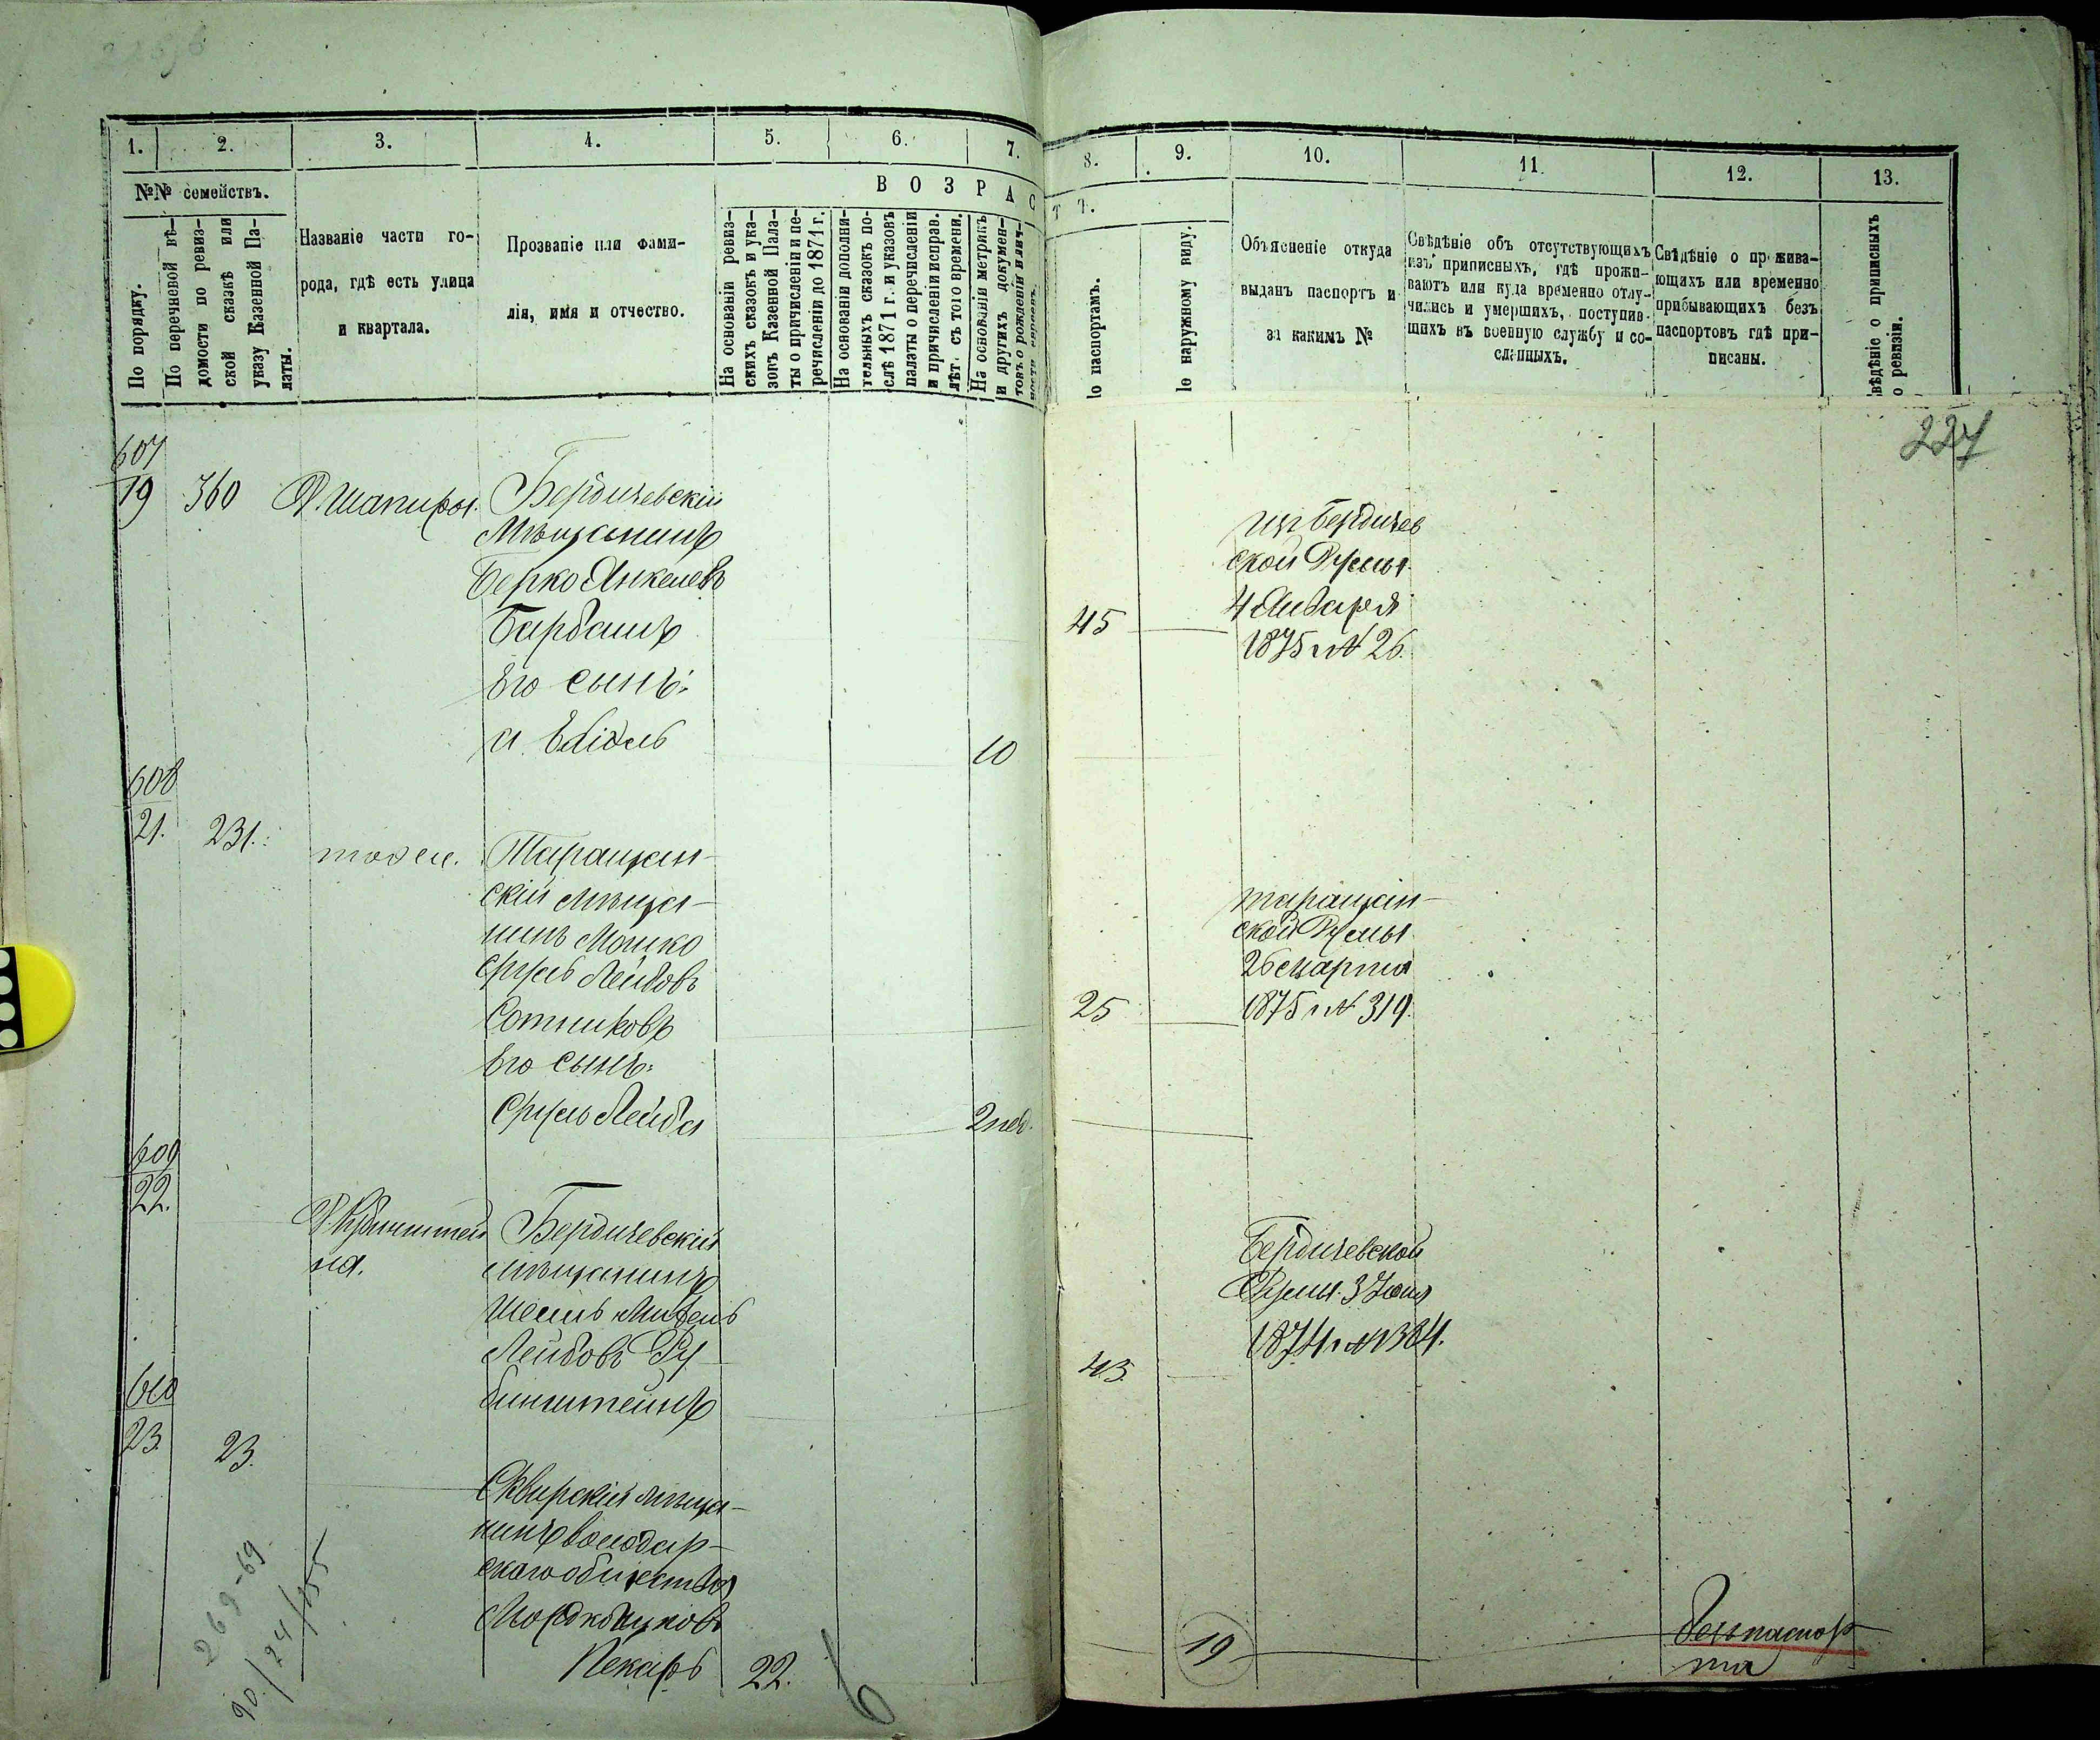 1.
2.
3.
4.
5.
6.
7.
8.
9.
10.
11.
12.
13.
№№ семействъ.
ВОЗРАС
Т Ъ.
По порядку.
По перечневой вѣ-
домости по ревиз-
ской сказкѣ или
указу Казенной Па-
латы.
Названіе части го-
рода, гдѣ есть улица
и квартала.
Прозваніе или фами-
лія, имя и отчество.
На основаніи ревиз-
скихъ сказокъ и ука-
зовъ Казенной Пала-
ты о причисленіи и пе-
речисленіи до 1871 г.
На основаніи дополни-
тельныхъ сказокъ по-
слѣ 1871 г. и указовъ
палаты о перечисленіи
и причисленіи исправ.
лѣт. съ того времени.
На основаніи метрикъ
и другихъ докумен-
товъ о рожденіи
о паспортамъ.
о наружному виду.
Объясненіе откуда
выданъ паспортъ и
за какимъ №
Свѣдѣніе объ отсутствующихъ
изъ приписныхъ, гдѣ прожи-
ваютъ или куда временно отлу-
чились и умершихъ, поступив-
шихъ въ военную службу и со-
сланныхъ.
Свѣдѣніе о прожива-
ющихъ или временно
прибывающихъ безъ
паспортовъ гдѣ при-
писаны.
вѣдѣніе о приписныхъ
о ревизіи.
227
607
19 360 Д. Шапиры. Бердичевскій
Мѣщанинъ
Берко Янкелевъ
Барбашъ
45
изъ Бердичев
ской Думы
4 Января
1875 г. № 26.
Его сынъ:
10
608
21. 231. тоже. Таращан-
скій мѣща-
нинъ Мошко
Сруль Лейбовъ
Сотниковъ
25
Таращан-
ской Думы
26 марта
1875 г. № 319.
Его сынъ:
Сруль Лейба 2 нед.
609
22.
Д. Рубинштей
на.
Бердичевскій
мѣщанинъ
Лейбовъ Ру-
бинштейнъ
43.
Бердичевской
Думы. 3 Іюня
1874 г. № 1384.
610
23. 23.
Сквирскій мѣща-
нинъ Володар-
скаго общества
Пекарь 22.
19
безъ паспор-
та
269-69
90/24/155
6